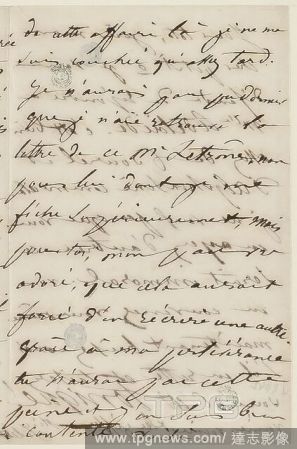 de cette affaire là je ne me
suis couchée qu'assez tard.
Je n'aurais pas pu dormir
que je n'aie retrouvé la
lettre de ce Mr Letrône, non
pour lui dont je me
fiche supérieurement, mais
pour toi, mon
adoré, que cela aurait
forcé d'en récrire une autre
grâce à ma persévérance
tu n'auras pas cette
peine et j'en suis bien
contente
TPG
www.tpgnews.com / 達志影像